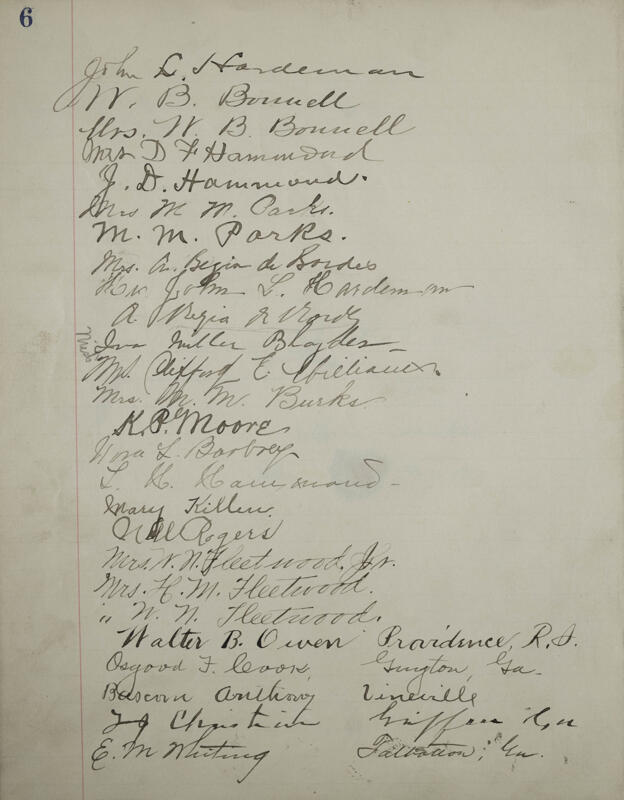 6
John L. Hardeman
W. B. Bonnell
Mrs. W. B. Bonnell
Mrs D F Hammond
J. D. Hammond.
Mrs M. M. Parks.
M. M. Parks.
Mrs. A. Begia de Bordes
John L. Hardeman
A Begia
Miss Iva Miller
Clifford E. Williams.
Mrs. M. M. Burks.
K. P. Moore
Nora L.
L. H. Hammond
Mary Killen.
Rogers
Mrs. N. N. Fleetwood, Jr.
Mrs. H. M. Fleetwood.
" W. N. Fleetwood.
Walter B. Owen Providence, R.I.
Osgood F. Cook Guyton, Ga.
Bascom Anthony Vineville
Christian Griffin Ga
E. M Whiting Talbotton, Ga.